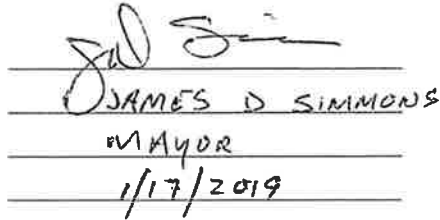 JAMES D SIMMONS
MAYOR
1/17/2019